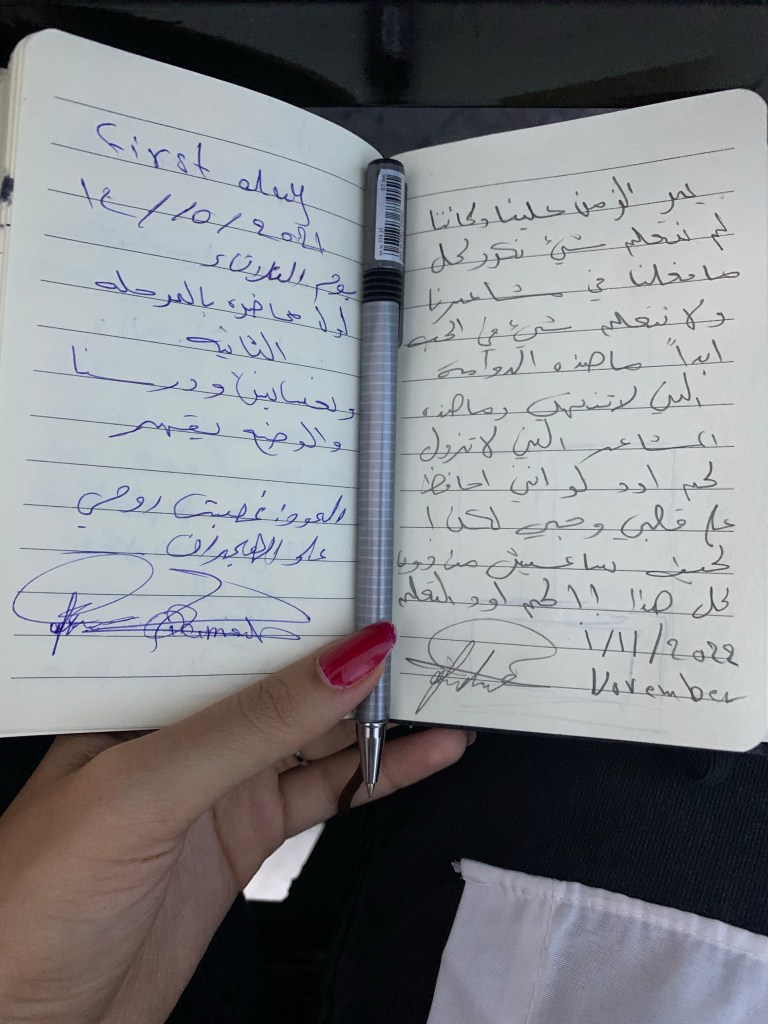 First day
١٤/١٠/٢٠٢١
يوم الثلاثاء
اول محاضره بالمرحله
الثانيه
ودرسنا
والوضع يقهر
روحي
على الهجران
يمر الزمن علينا وكاننا
لم نتعلم شيئ نكرر كل
مافعلنا في مشاعرنا
ولا نتعلم شيئ في الحب
ابداً ماهذه الدوامة
التي لاتنتهي وماهذه
المشاعر التي لاتزول
كم اود لو انني احافظ
على قلبي وحبي لكن!
كيف ساعيش من دون
كل هذا !! كم اود التعلم
1/11/2022
November